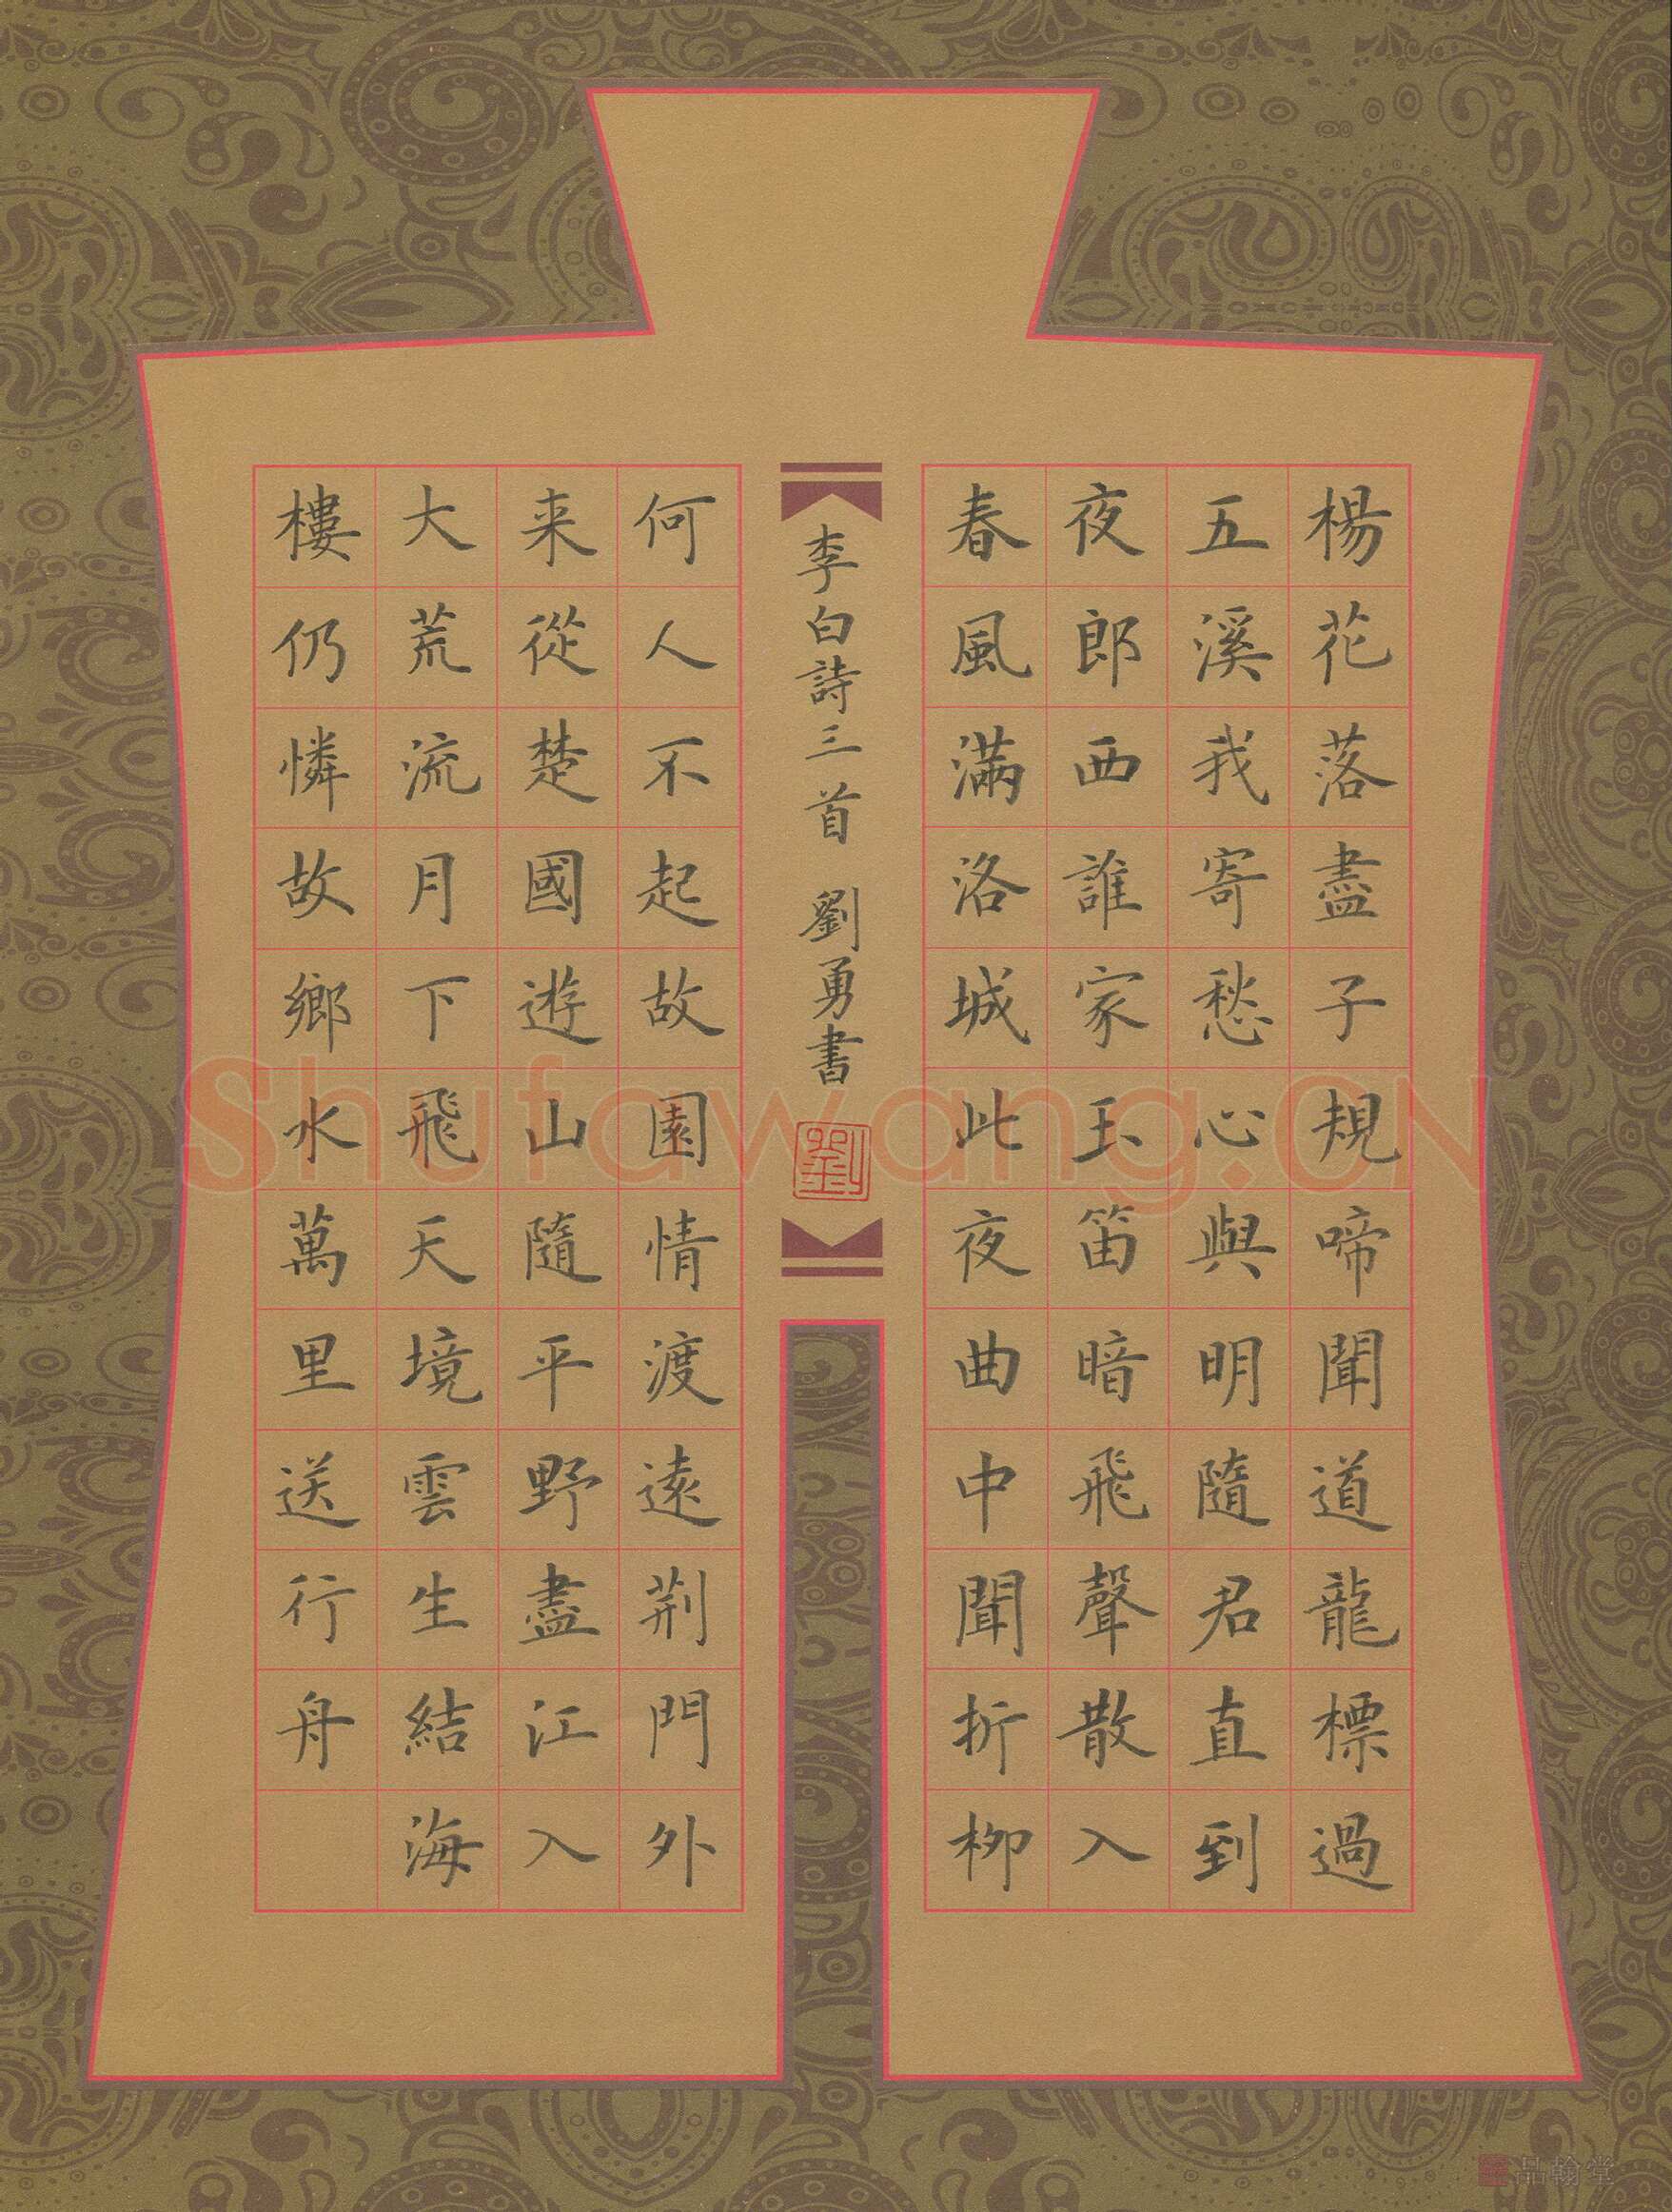 楊花落盡子規啼聞道龍標過
五溪我寄愁心與明隨君直到
夜郎西誰家玉笛暗飛聲散入
春風滿洛城此夜曲中聞折柳
李白詩三首 劉勇書
劉
何人不起故園情渡遠荊門外
来從楚國遊山隨平野盡江入
大荒流月下飛天境雲生結海
樓仍憐故鄉水萬里送行舟
Shufawang.CN
品翰堂